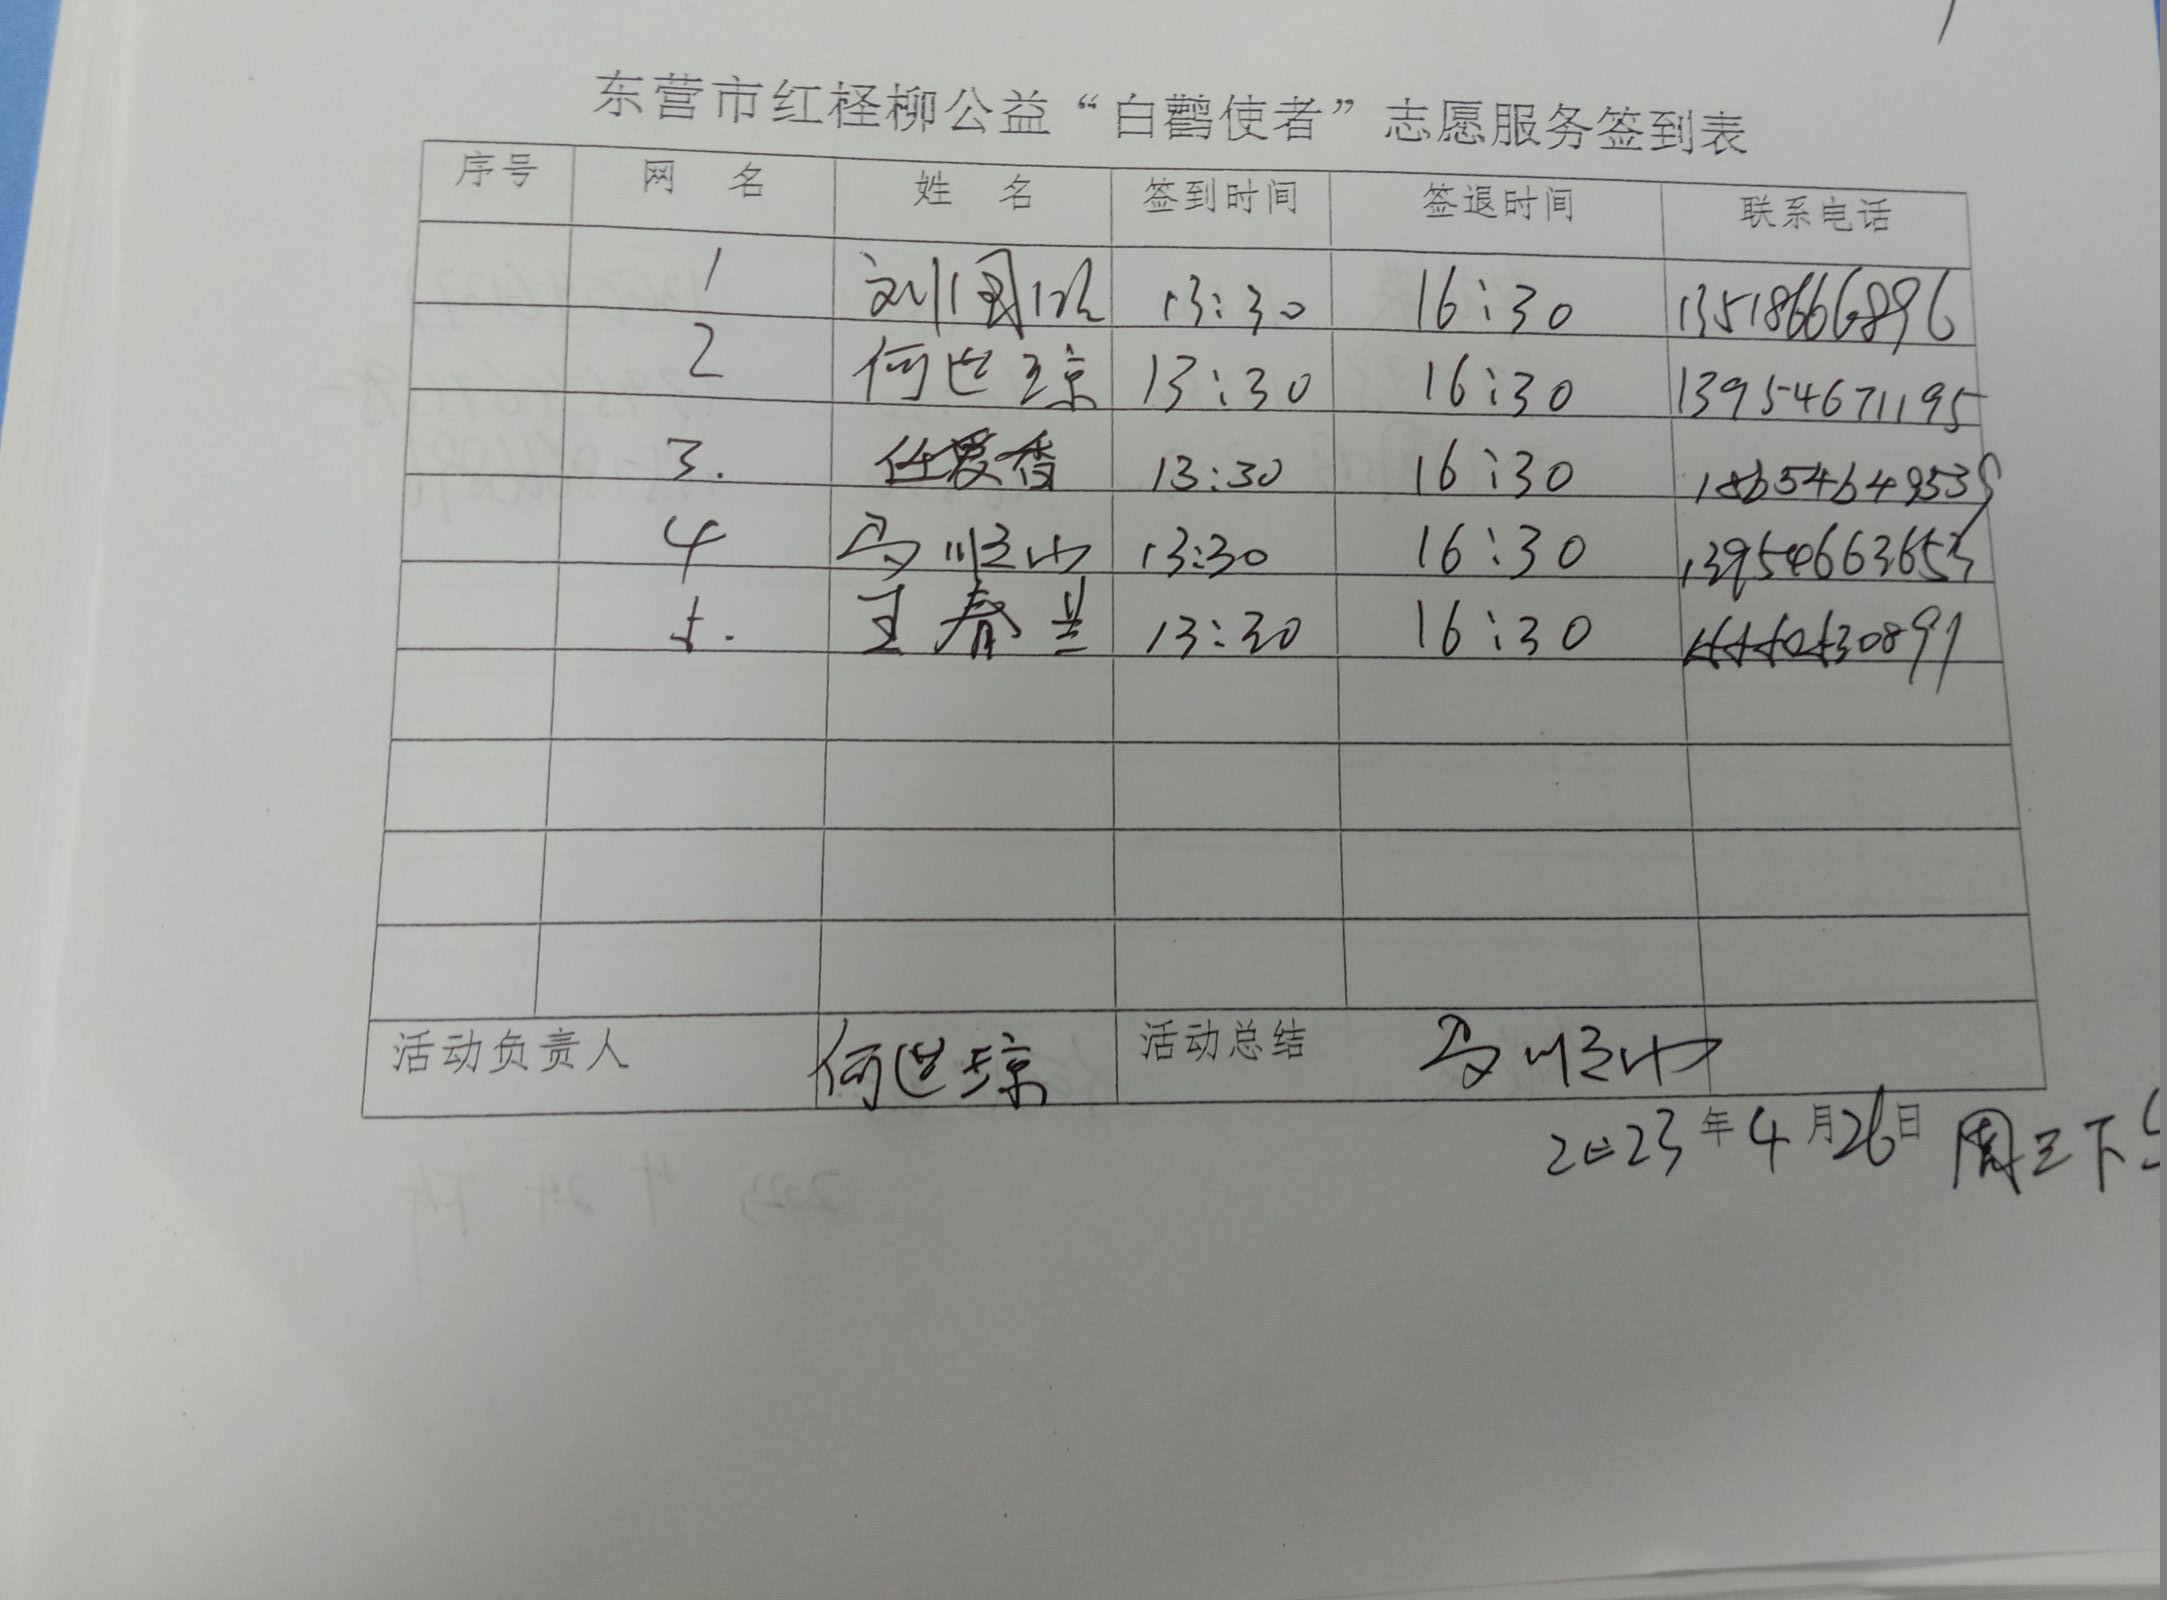 东营市红柽柳公益“白鹳使者”志愿服务签到表
序号 网 名 姓 名 签到时间 签退时间 联系电话
1 刘国 13:30 16:30 13518666896
2 何世琼 13:30 16:30 13954671195
3. 任爱香 13:30 16:30
4 马顺山 13:30 16:30 13954663653
5. 王春兰 13:30 16:30
活动负责人 何世琼 活动总结 马顺山
2023年4月26日 周三下午